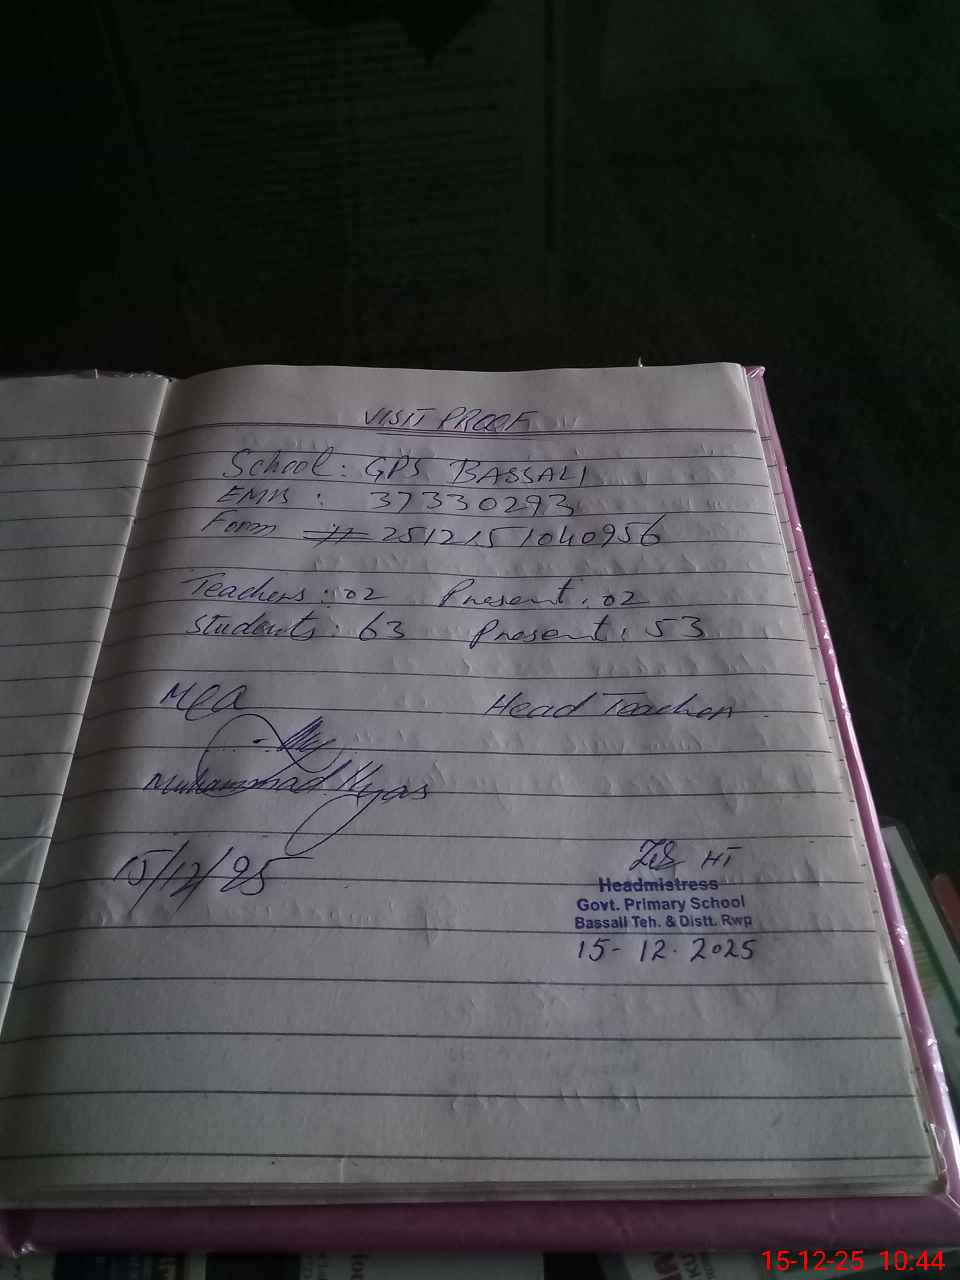 VISIT PROOF
School: GPS BASSALI
EMIS : 37330293
Form # 2512151040956
Teachers: 02 Present: 02
Students: 63 Present: 53
MEA Head Teacher
Muhammad Ilyas
15/12/25
HT
Headmistress
Govt. Primary School
Bassali Teh. & Distt. Rwp
15-12-2025
15-12-25 10:44